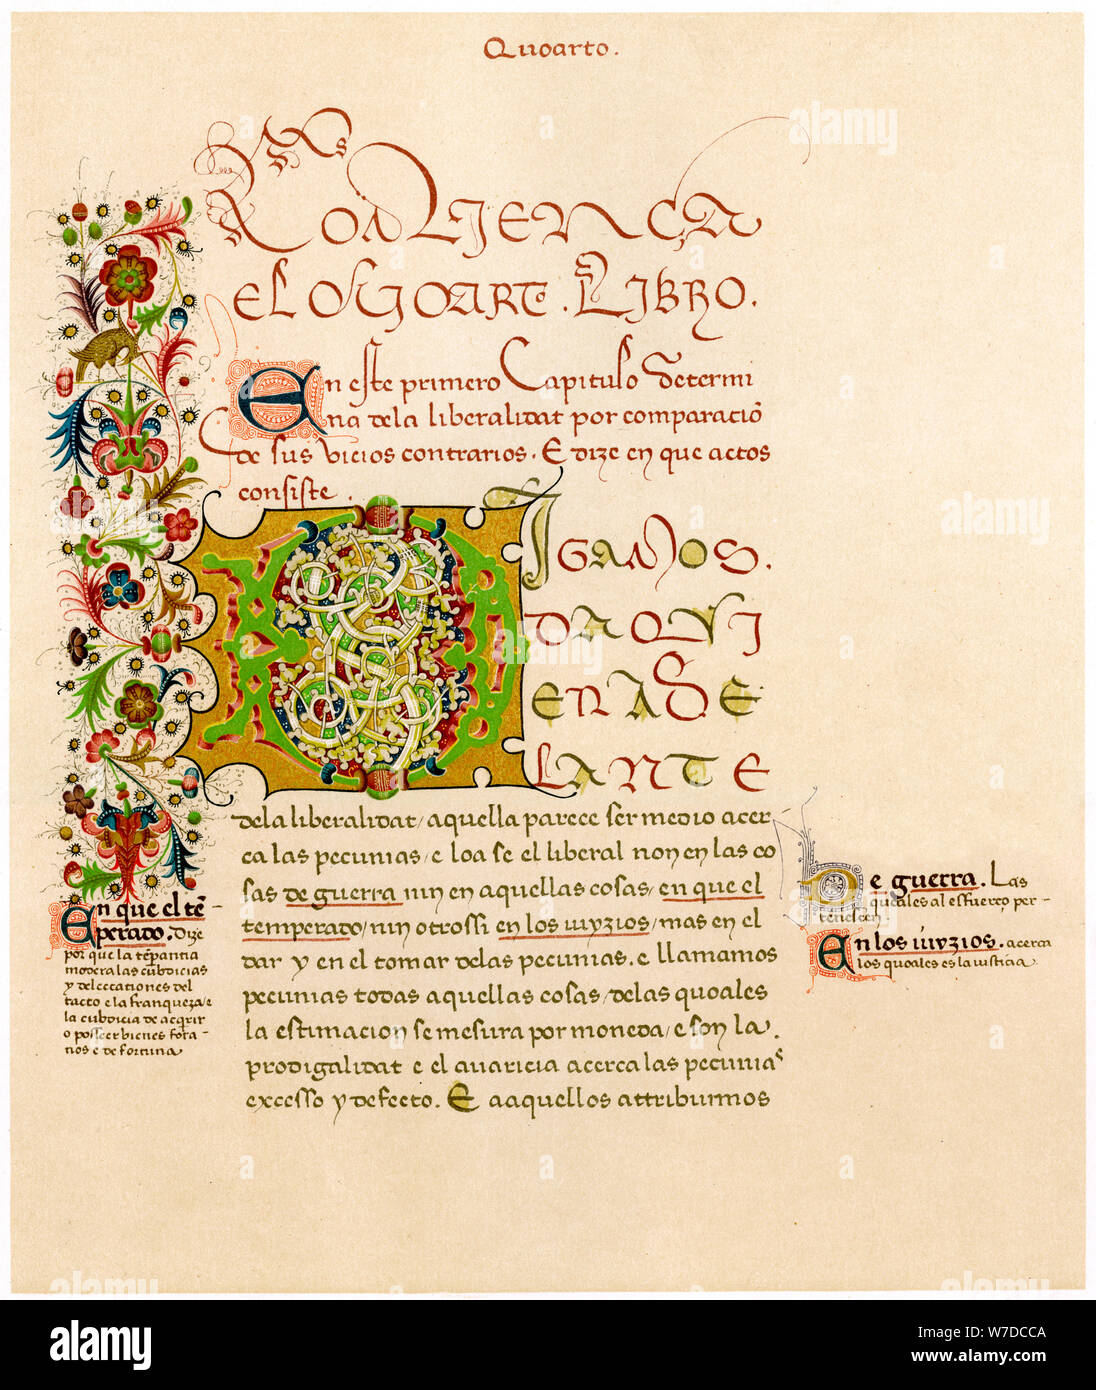 Quoarto.
el quoarto. Libro.
En este primero Capitulo determi
na dela liberalidat por comparaciõ
de sus vicios contrarios. E dize en que actos
consiste.
Digamos.
daqui
en ade
lante
dela liberalidat/ aquella parece ser medio acer
ca las pecunias/ e loa se el liberal non en las co
sas de guerra nin en aquellas cosas/ en que el
temperado/ nin otrossi en los iuyzios/ mas en el
dar y en el tomar delas pecunias. e llamamos
pecunias todas aquellas cosas/ delas quoales
la estimacion se mesura por moneda/ e son la
prodigalidat e el auaricia acerca las pecunias
excesso y defecto. E aaquellos attribuimos
En que el tē-
perado. Dize
por que la tēpantia
modera las cubdicias
y delectationes del
tacto e la franqueza/ e
la cubdicia de acqrir
o posseer bienes fora-
nos e de fortuna
De guerra. Las
quoales al esfuerço per-
tenescen
En los iuyzios. acerca
los quoales es la iusticia
alamy
a
alamy
Image ID: W7DCCA
www.alamy.com